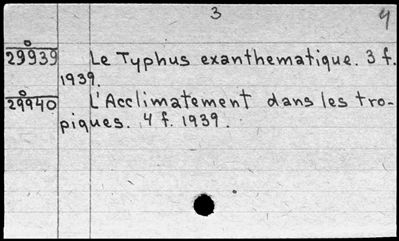 3 4
8° 29939 Le Typhus exanthematique. 3 f.
1939.
8° 29940 L'Acclimatement dans les tro-
piques. 4 f. 1939.